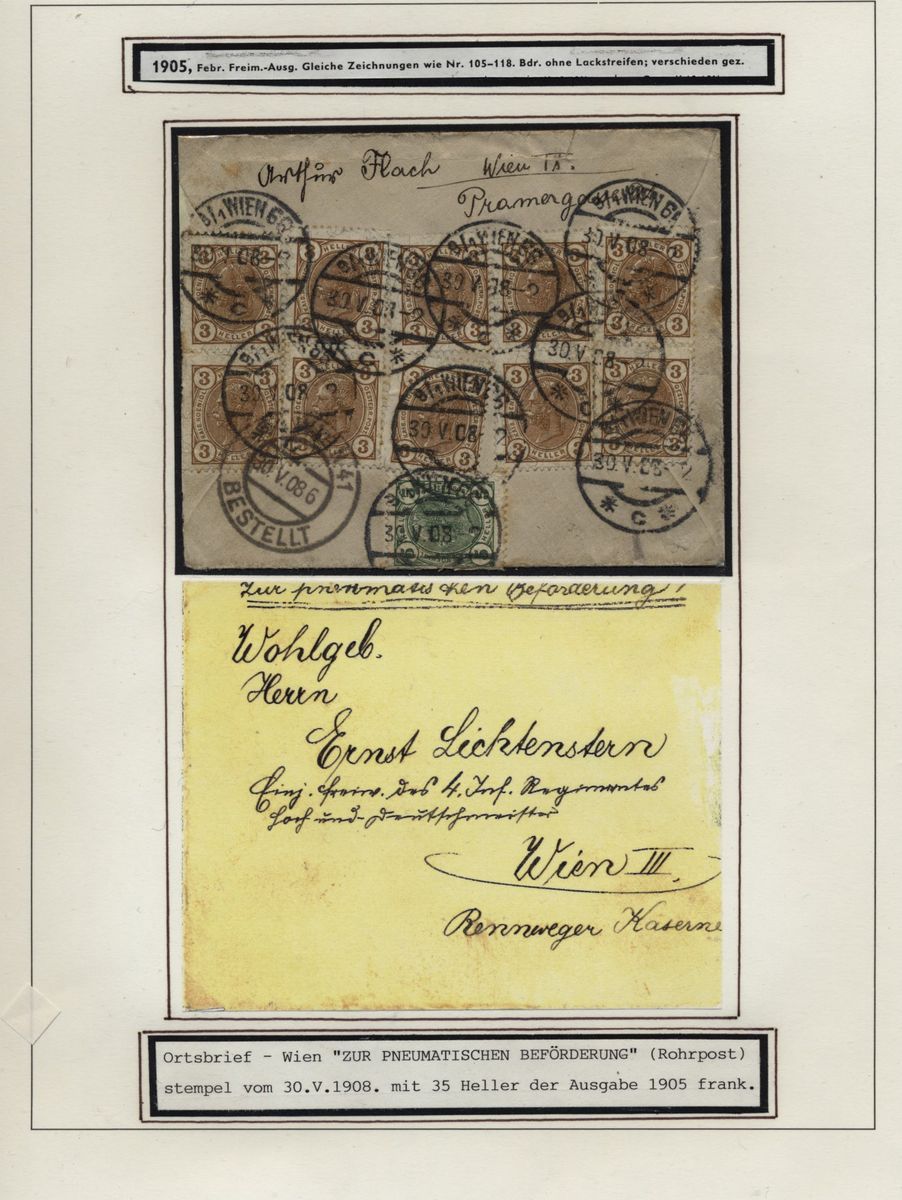 1905, Febr. Freim.-Ausg. Gleiche Zeichnungen wie Nr. 105–118. Bdr. ohne Lackstreifen; verschieden gez.
Arthur Flach Wien IX.
Pramergasse
9/1 WIEN 66
30.V.08
* C *
3 HELLER 3
41
30.V.08 6
BESTELLT
5 HELLER 5
Zur pneumatischen Beförderung!
Wohlgeb.
Herrn
Ernst Lichtenstern
Einj. freiw. des 4. Inf. Regimentes
Hoch- und Deutschmeister
Wien III.
Rennweger Kaserne
Ortsbrief - Wien "ZUR PNEUMATISCHEN BEFÖRDERUNG" (Rohrpost)
stempel vom 30.V.1908. mit 35 Heller der Ausgabe 1905 frank.